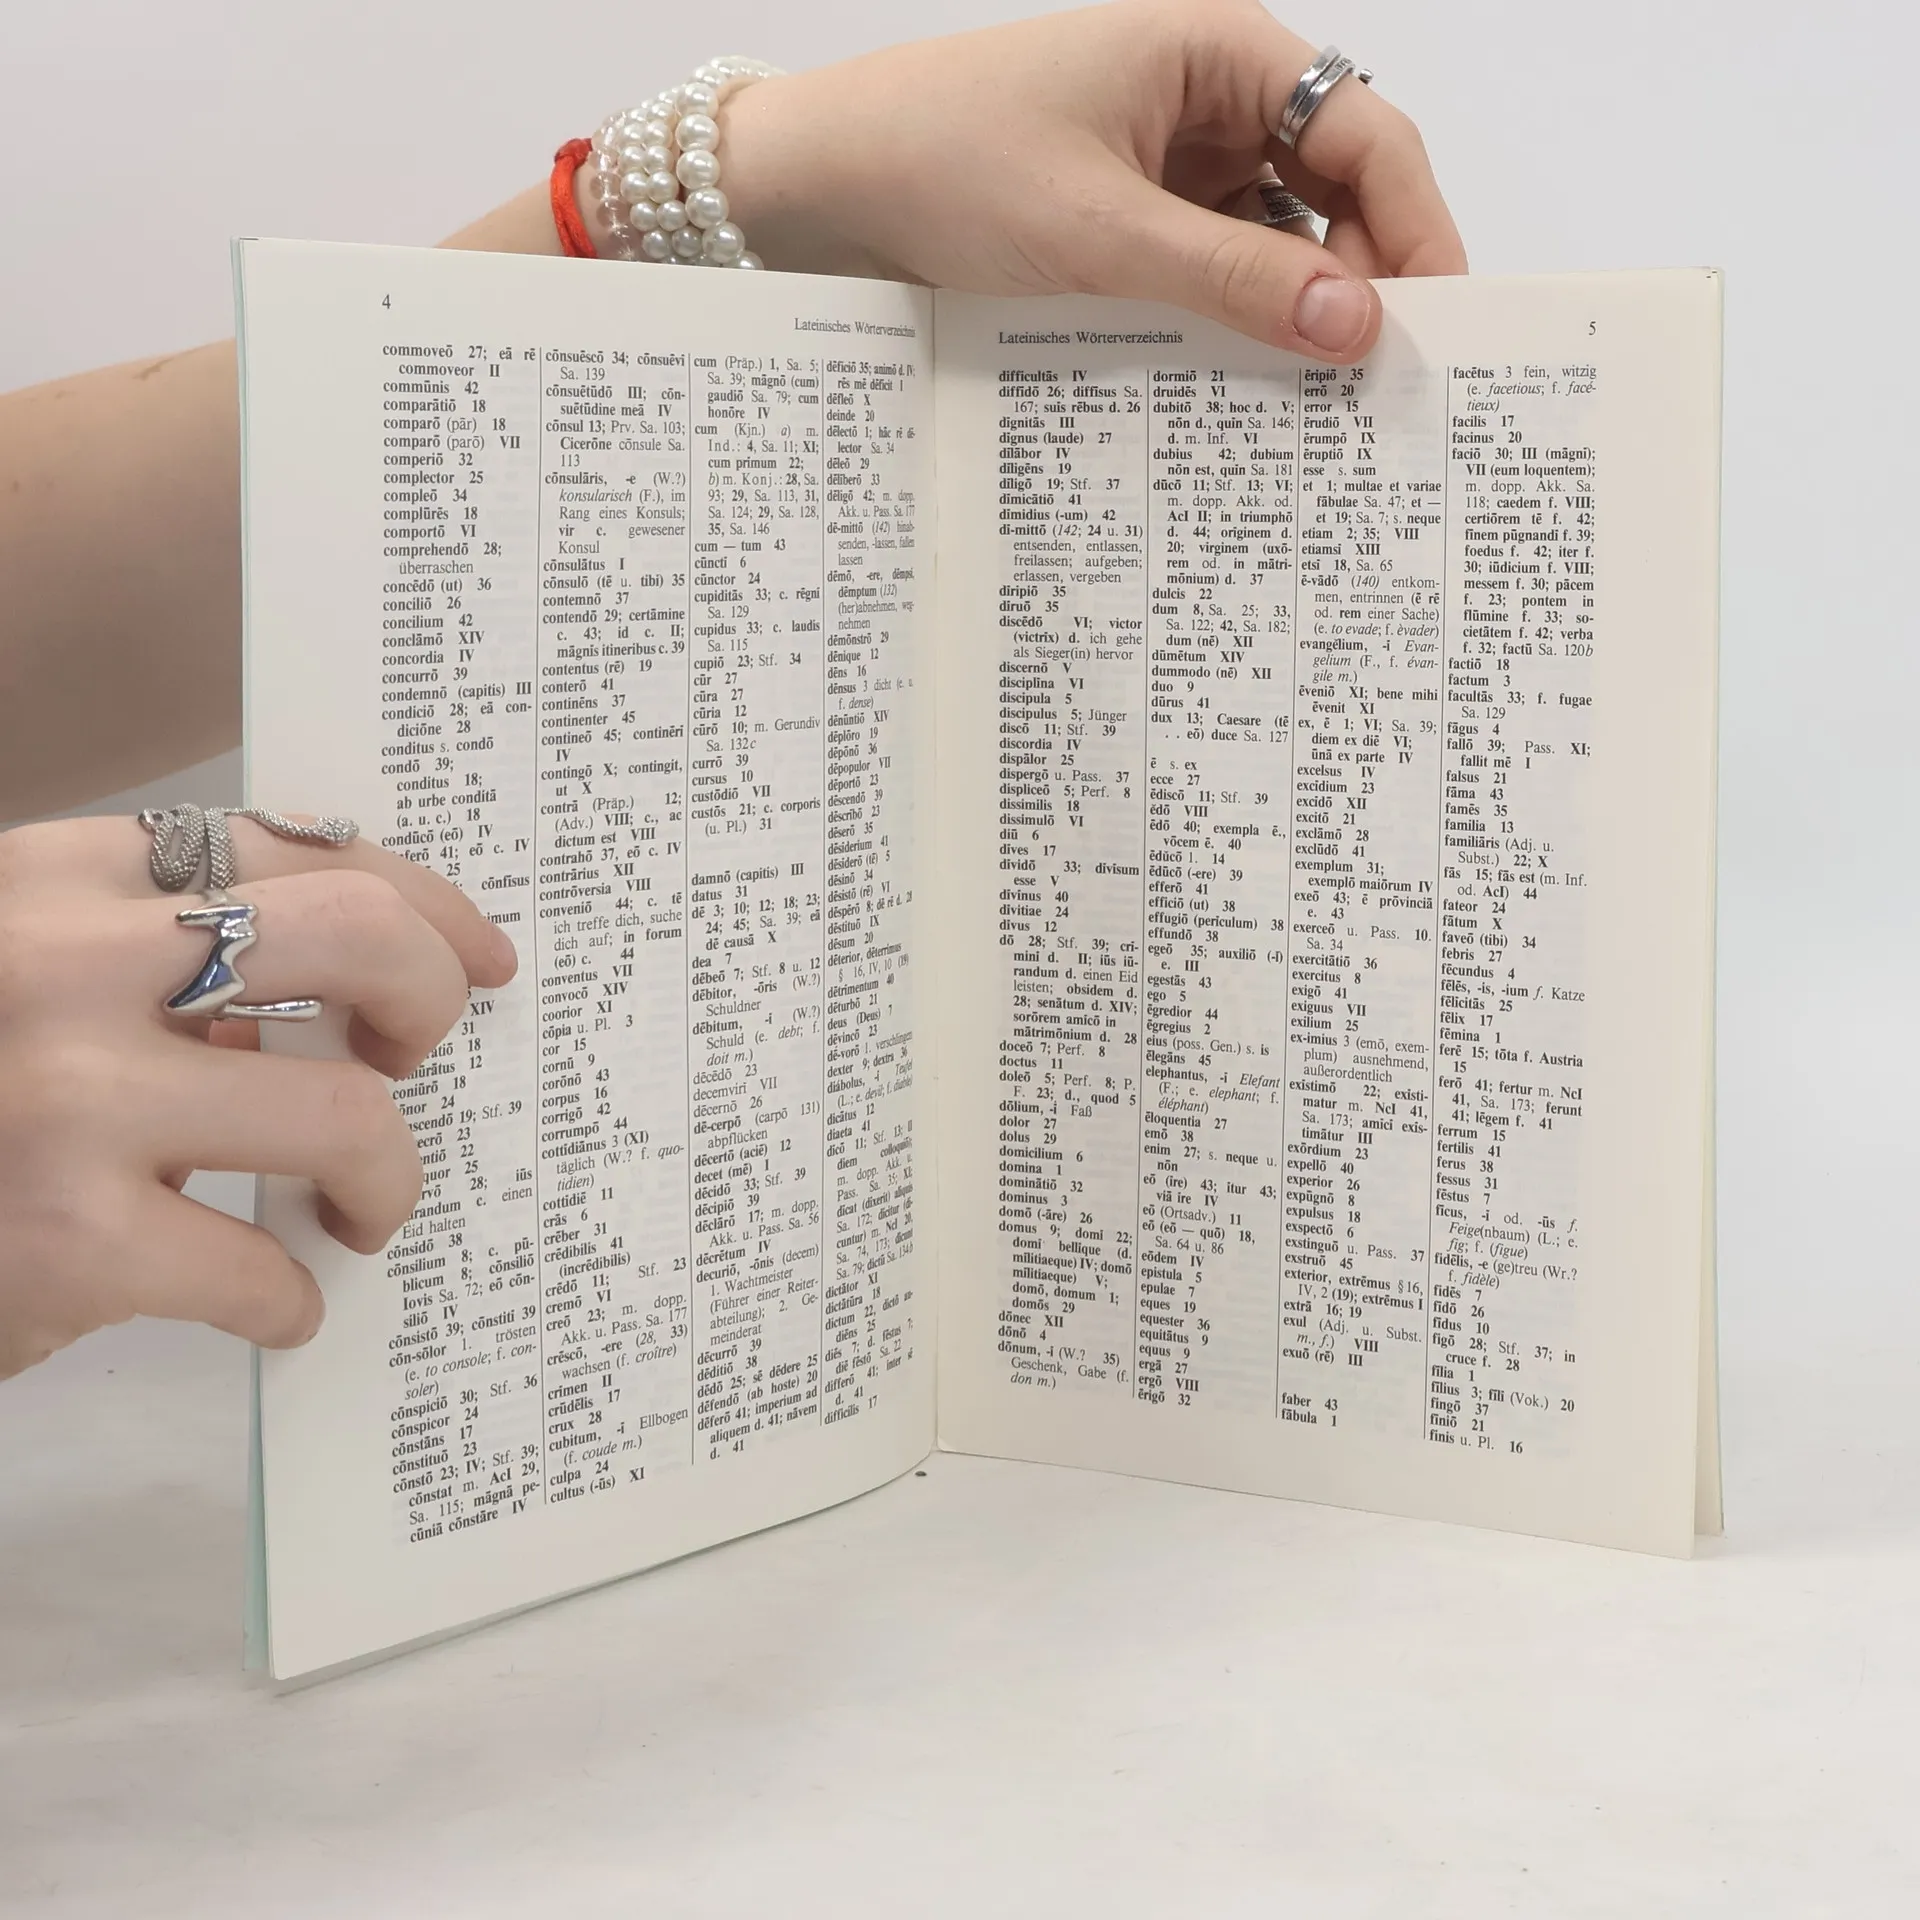 4
Lateinisches Wörterverzeichnis
commoveō 27; eā rē
commoveor II
commūnis 42
comparātiō 18
comparō (pār) 18
comparō (parō) VII
comperiō 32
complector 25
compleō 34
complūrēs 18
comportō VI
comprehendō 28;
überraschen
concēdō (ut) 36
conciliō 26
concilium 42
conclāmō XIV
concordia IV
concurrō 39
condemnō (capitis) III
condiciō 28; eā con-
diciōne 28
conditus s. condō
condō 39;
conditus 18;
ab urbe conditā
(a. u. c.) 18
condūcō (eō) IV
41; eō c. IV
25
cōnfīsus
XIV
31
18
12
coniūrō 18
24
19; Stf. 39
23
22
25
28; iūs
c. einen
Eid halten
cōnsīdō 38
cōnsilium 8; c. pū-
blicum 8; cōnsiliō
Iovis Sa. 72; eō cōn-
siliō IV
cōnsistō 39; cōnstitī 39
cōn-sōlor 1. trösten
(e. to console; f. con-
soler)
cōnspiciō 30; Stf. 36
cōnspicor 24
cōnstāns 17
cōnstituō 23
cōnstō 23; IV; Stf. 39;
cōnstat m. AcI 29,
Sa. 115; māgnā pe-
cūniā cōnstāre IV
cōnsuēscō 34; cōnsuēvī
Sa. 139
cōnsuētūdō III; cōn-
suētūdine meā IV
cōnsul 13; Prv. Sa. 103;
Cicerōne cōnsule Sa.
113
cōnsulāris, -e (W.?)
konsularisch (F.), im
Rang eines Konsuls;
vir c. gewesener
Konsul
cōnsulātus I
cōnsulō (tē u. tibi) 35
contemnō 37
contendō 29; certāmine
c. 43; id c. II;
māgnis itineribus c. 39
contentus (rē) 19
conterō 41
continēns 37
continenter 45
contineō 45; continērī
IV
contingō X; contingit,
ut X
contrā (Präp.) 12;
(Adv.) VIII; c., ac
dictum est VIII
contrahō 37, eō c. IV
contrārius XII
contrōversia VIII
conveniō 44; c. tē
ich treffe dich, suche
dich auf; in forum
(eō) c. 44
conventus VII
convocō XIV
coorior XI
cōpia u. Pl. 3
cor 15
cornū 9
corōnō 43
corpus 16
corrigō 42
corrumpō 44
cottīdiānus 3 (XI)
täglich (W.? f. quo-
tidien)
cottīdiē 11
crās 6
crēber 31
crēdibilis 41
(incrēdibilis)
crēdō 11; Stf. 23
cremō VI
creō 23; m. dopp.
Akk. u. Pass. Sa. 177
crēscō, -ere (28, 33)
wachsen (f. croître)
crīmen II
crūdēlis 17
crux 28
cubitum, -ī Ellbogen
(f. coude m.)
culpa 24
cultus (-ūs) XI
cum (Präp.) 1, Sa. 5;
Sa. 39; māgnō (cum)
gaudiō Sa. 79; cum
honōre IV
cum (Kjn.) a) m.
Ind.: 4, Sa. 11; XI;
cum primum 22;
b) m. Konj.: 28, Sa.
93; 29, Sa. 113, 31,
Sa. 124; 29, Sa. 128,
35, Sa. 146
cum — tum 43
cūnctī 6
cūnctor 24
cupiditās 33; c. rēgnī
Sa. 129
cupidus 33; c. laudis
Sa. 115
cupiō 23; Stf. 34
cūr 27
cūra 27
cūria 12
cūrō 10; m. Gerundiv
Sa. 132c
currō 39
cursus 10
custōdiō VII
custōs 21; c. corporis
(u. Pl.) 31
damnō (capitis) III
datus 31
dē 3; 10; 12; 18; 23;
24; 45; Sa. 39; eā
dē causā X
dea 7
dēbeō 7; Stf. 8 u. 12
dēbitor, -ōris (W.?)
Schuldner
dēbitum, -ī (W.?)
Schuld (e. debt; f.
doit m.)
dēcēdō 23
decemvirī VII
dēcernō 26
dē-cerpō (carpō 131)
abpflücken
dēcertō (aciē) 12
decet (mē) I
dēcidō 33; Stf. 39
dēcipiō 39
dēclārō 17; m. dopp.
Akk. u. Pass. Sa. 56
dēcrētum IV
decuriō, -ōnis (decem)
1. Wachtmeister
(Führer einer Reiter-
abteilung); 2. Ge-
meinderat
dēcurrō 39
dēditiō 38
dēdō 25; sē dēdere 25
dēfendō (ab hoste) 20
dēferō 41; imperium ad
aliquem d. 41; nāvem
d. 41
dēficiō 35; animō d. IV;
rēs mē dēficit I
dēfleō X
deinde 20
dēlectō 1; hāc rē dē-
lector Sa. 34
dēleō 29
dēlīberō 33
dēligō 42; m. dopp.
Akk. u. Pass. Sa. 177
dē-mittō (142) hinab-
senden, -lassen, fallen
lassen
dēmō, -ere, dēmpsī,
dēmptum (132)
(her)abnehmen, weg-
nehmen
dēmōnstrō 29
dēnique 12
dēns 16
dēnsus 3 dicht (e. u.
f. dense)
dēnūntiō XIV
dēplōrō 19
dēpōnō 36
dēpopulor VII
dēportō 23
dēscendō 39
dēscrībō 23
dēserō 35
dēsīderium 41
dēsīderō (tē) 5
dēsinō 34
dēsistō (rē) VI
dēspērō 8; dē rē d. 28
dēstituō IX
dēsum 20
dēterior, dēterrimus
§ 16, IV, 10 (19)
dētrīmentum 40
dēturbō 21
deus (Deus) 7
dēvincō 23
dē-vorō 1. verschlingen
dexter 9; dextra 36
diabolus, -ī Teufel
(L.; e. devil; f. diable)
dicātus 12
diaeta 41
dīcō 11; Stf. 13; II
diem colloquiō;
m. dopp. Akk. u.
Pass. Sa. 35; XI;
dīcat (dīxerit) aliquis
Sa. 172; dīcitur (dī-
cuntur) m. NcI 20,
Sa. 74, 173; dīcunt
Sa. 79; dictū Sa. 134b
dictātor XI
dictātūra 18
dictum 22, dictō au-
diēns 25
diēs 7; d. fēstus 7;
diē fēstō Sa. 22
differō 41; inter sē
d. 41
difficilis 17
Lateinisches Wörterverzeichnis
5
difficultās IV
diffīdō 26; diffīsus Sa.
167; suīs rēbus d. 26
dignitās III
dignus (laude) 27
dīlābor IV
dīligēns 19
dīligō 19; Stf. 37
dīmicātiō 41
dīmidius (-um) 42
dī-mittō (142; 24 u. 31)
entsenden, entlassen,
freilassen; aufgeben;
erlassen, vergeben
dīripiō 35
dīruō 35
discēdō VI; victor
(victrix) d. ich gehe
als Sieger(in) hervor
discernō V
disciplīna VI
discipula 5
discipulus 5; Jünger
discō 11; Stf. 39
discordia IV
dispālor 25
dispergō u. Pass. 37
displiceō 5; Perf. 8
dissimilis 18
dissimulō VI
diū 6
dīves 17
dīvidō 33; dīvīsum
esse V
dīvīnus 40
dīvitiae 24
dīvus 12
dō 28; Stf. 39; crī-
minī d. II; iūs iū-
randum d. einen Eid
leisten; obsidem d.
28; senātum d. XIV;
sorōrem amīcō in
mātrimōnium d. 28
doceō 7; Perf. 8
doctus 11
doleō 5; Perf. 8; P.
F. 23; d., quod 5
dōlium, -ī Faß
dolor 27
dolus 29
domicilium 6
domina 1
dominātiō 32
dominus 3
domō (-āre) 26
domus 9; domī 22;
domī bellīque (d.
mīlitiaeque) IV; domō
mīlitiaeque) V;
domō, domum 1;
domōs 29
dōnec XII
dōnō 4
dōnum, -ī (W.? 35)
Geschenk, Gabe (f.
don m.)
dormiō 21
druidēs VI
dubitō 38; hoc d. V;
nōn d., quīn Sa. 146;
d. m. Inf. VI
dubius 42; dubium
nōn est, quīn Sa. 181
dūcō 11; Stf. 13; VI;
m. dopp. Akk. od.
AcI II; in triumphō
d. 44; orīginem d.
20; virginem (uxō-
rem od. in mātri-
mōnium) d. 37
dulcis 22
dum 8, Sa. 25; 33,
Sa. 122; 42, Sa. 182;
dum (nē) XII
dūmētum XIV
dummodo (nē) XII
duo 9
dūrus 41
dux 13; Caesare (tē
. . eō) duce Sa. 127
ē s. ex
ecce 27
ēdiscō 11; Stf. 39
ēdō VIII
ēdō 40; exempla ē.,
vōcem ē. 40
ēducō 1. 14
ēdūcō (-ere) 39
efferō 41
efficiō (ut) 38
effugiō (perīculum) 38
effundō 38
egeō 35; auxiliō (-ī)
e. III
egestās 43
ego 5
ēgredior 44
ēgregius 2
eius (poss. Gen.) s. is
ēlegāns 45
elephantus, -ī Elefant
(F.; e. elephant; f.
éléphant)
ēloquentia 27
emō 38
enim 27; s. neque u.
nōn
eō (īre) 43; itur 43;
viā īre IV
eō (Ortsadv.) 11
eō (eō — quō) 18,
Sa. 64 u. 86
eōdem IV
epistula 5
epulae 7
eques 19
equester 36
equitātus 9
equus 9
ergā 27
ergō VIII
ērigō 32
ēripiō 35
errō 20
error 15
ērudiō VII
ērumpō IX
ēruptiō IX
esse s. sum
et 1; multae et variae
fābulae Sa. 47; et —
et 19; Sa. 7; s. neque
etiam 2; 35; VIII
etiamsī XIII
etsī 18, Sa. 65
ē-vādō (140) entkom-
men, entrinnen (ē rē
od. rem einer Sache)
(e. to evade; f. évader)
evangēlium, -ī Evan-
gelium (F., f. évan-
gile m.)
ēveniō XI; bene mihi
ēvenit XI
ex, ē 1; VI; Sa. 39;
diem ex diē VI;
ūnā ex parte IV
excelsus IV
excidium 23
excīdō XII
excitō 21
exclāmō 28
exclūdō 41
exemplum 31;
exemplō maiōrum IV
exeō 43; ē prōvinciā
e. 43
exerceō u. Pass. 10.
Sa. 34
exercitātiō 36
exercitus 8
exigō 41
exiguus VII
exilium 25
ex-imius 3 (emō, exem-
plum) ausnehmend,
außerordentlich
existimō 22; existi-
matur m. NcI 41,
Sa. 173; amīcī exis-
timātur III
exōrdium 23
expellō 40
experior 26
expūgnō 8
expulsus 18
exspectō 6
exstinguō u. Pass. 37
exstruō 45
exterior, extrēmus § 16,
IV, 2 (19); extrēmus I
extrā 16; 19
exul (Adj. u. Subst.
m., f.) VIII
exuō (rē) III
faber 43
fābula 1
facētus 3 fein, witzig
(e. facetious; f. facé-
tieux)
facilis 17
facinus 20
faciō 30; III (māgnī);
VII (eum loquentem);
m. dopp. Akk. Sa.
118; caedem f. VIII;
certiōrem tē f. 42;
fīnem pūgnandī f. 39;
foedus f. 42; iter f.
30; iūdicium f. VIII;
messem f. 30; pācem
f. 23; pontem in
flūmine f. 33; so-
cietātem f. 42; verba
f. 32; factū Sa. 120b
factiō 18
factum 3
facultās 33; f. fugae
Sa. 129
fāgus 4
fallō 39; Pass. XI;
fallit mē I
falsus 21
fāma 43
famēs 35
familia 13
familiāris (Adj. u.
Subst.) 22; X
fās 15; fās est (m. Inf.
od. AcI) 44
fateor 24
fātum X
faveō (tibi) 34
febris 27
fēcundus 4
fēlēs, -is, -ium f. Katze
fēlīcitās 25
fēlīx 17
fēmina 1
ferē 15; tōta f. Austria
15
ferō 41; fertur m. NcI
41, Sa. 173; ferunt
41; lēgem f. 41
ferrum 15
fertilis 41
ferus 38
fessus 31
fēstus 7
fīcus, -ī od. -ūs f.
Feige(nbaum) (L.; e.
fig; f. (figue)
fidēlis, -e (ge)treu (Wr.?
f. fidèle)
fidēs 7
fīdō 26
fīdus 10
fīgō 28; Stf. 37; in
cruce f. 28
fīlia 1
fīlius 3; fīlī (Vok.) 20
fingō 37
fīniō 21
fīnis u. Pl. 16